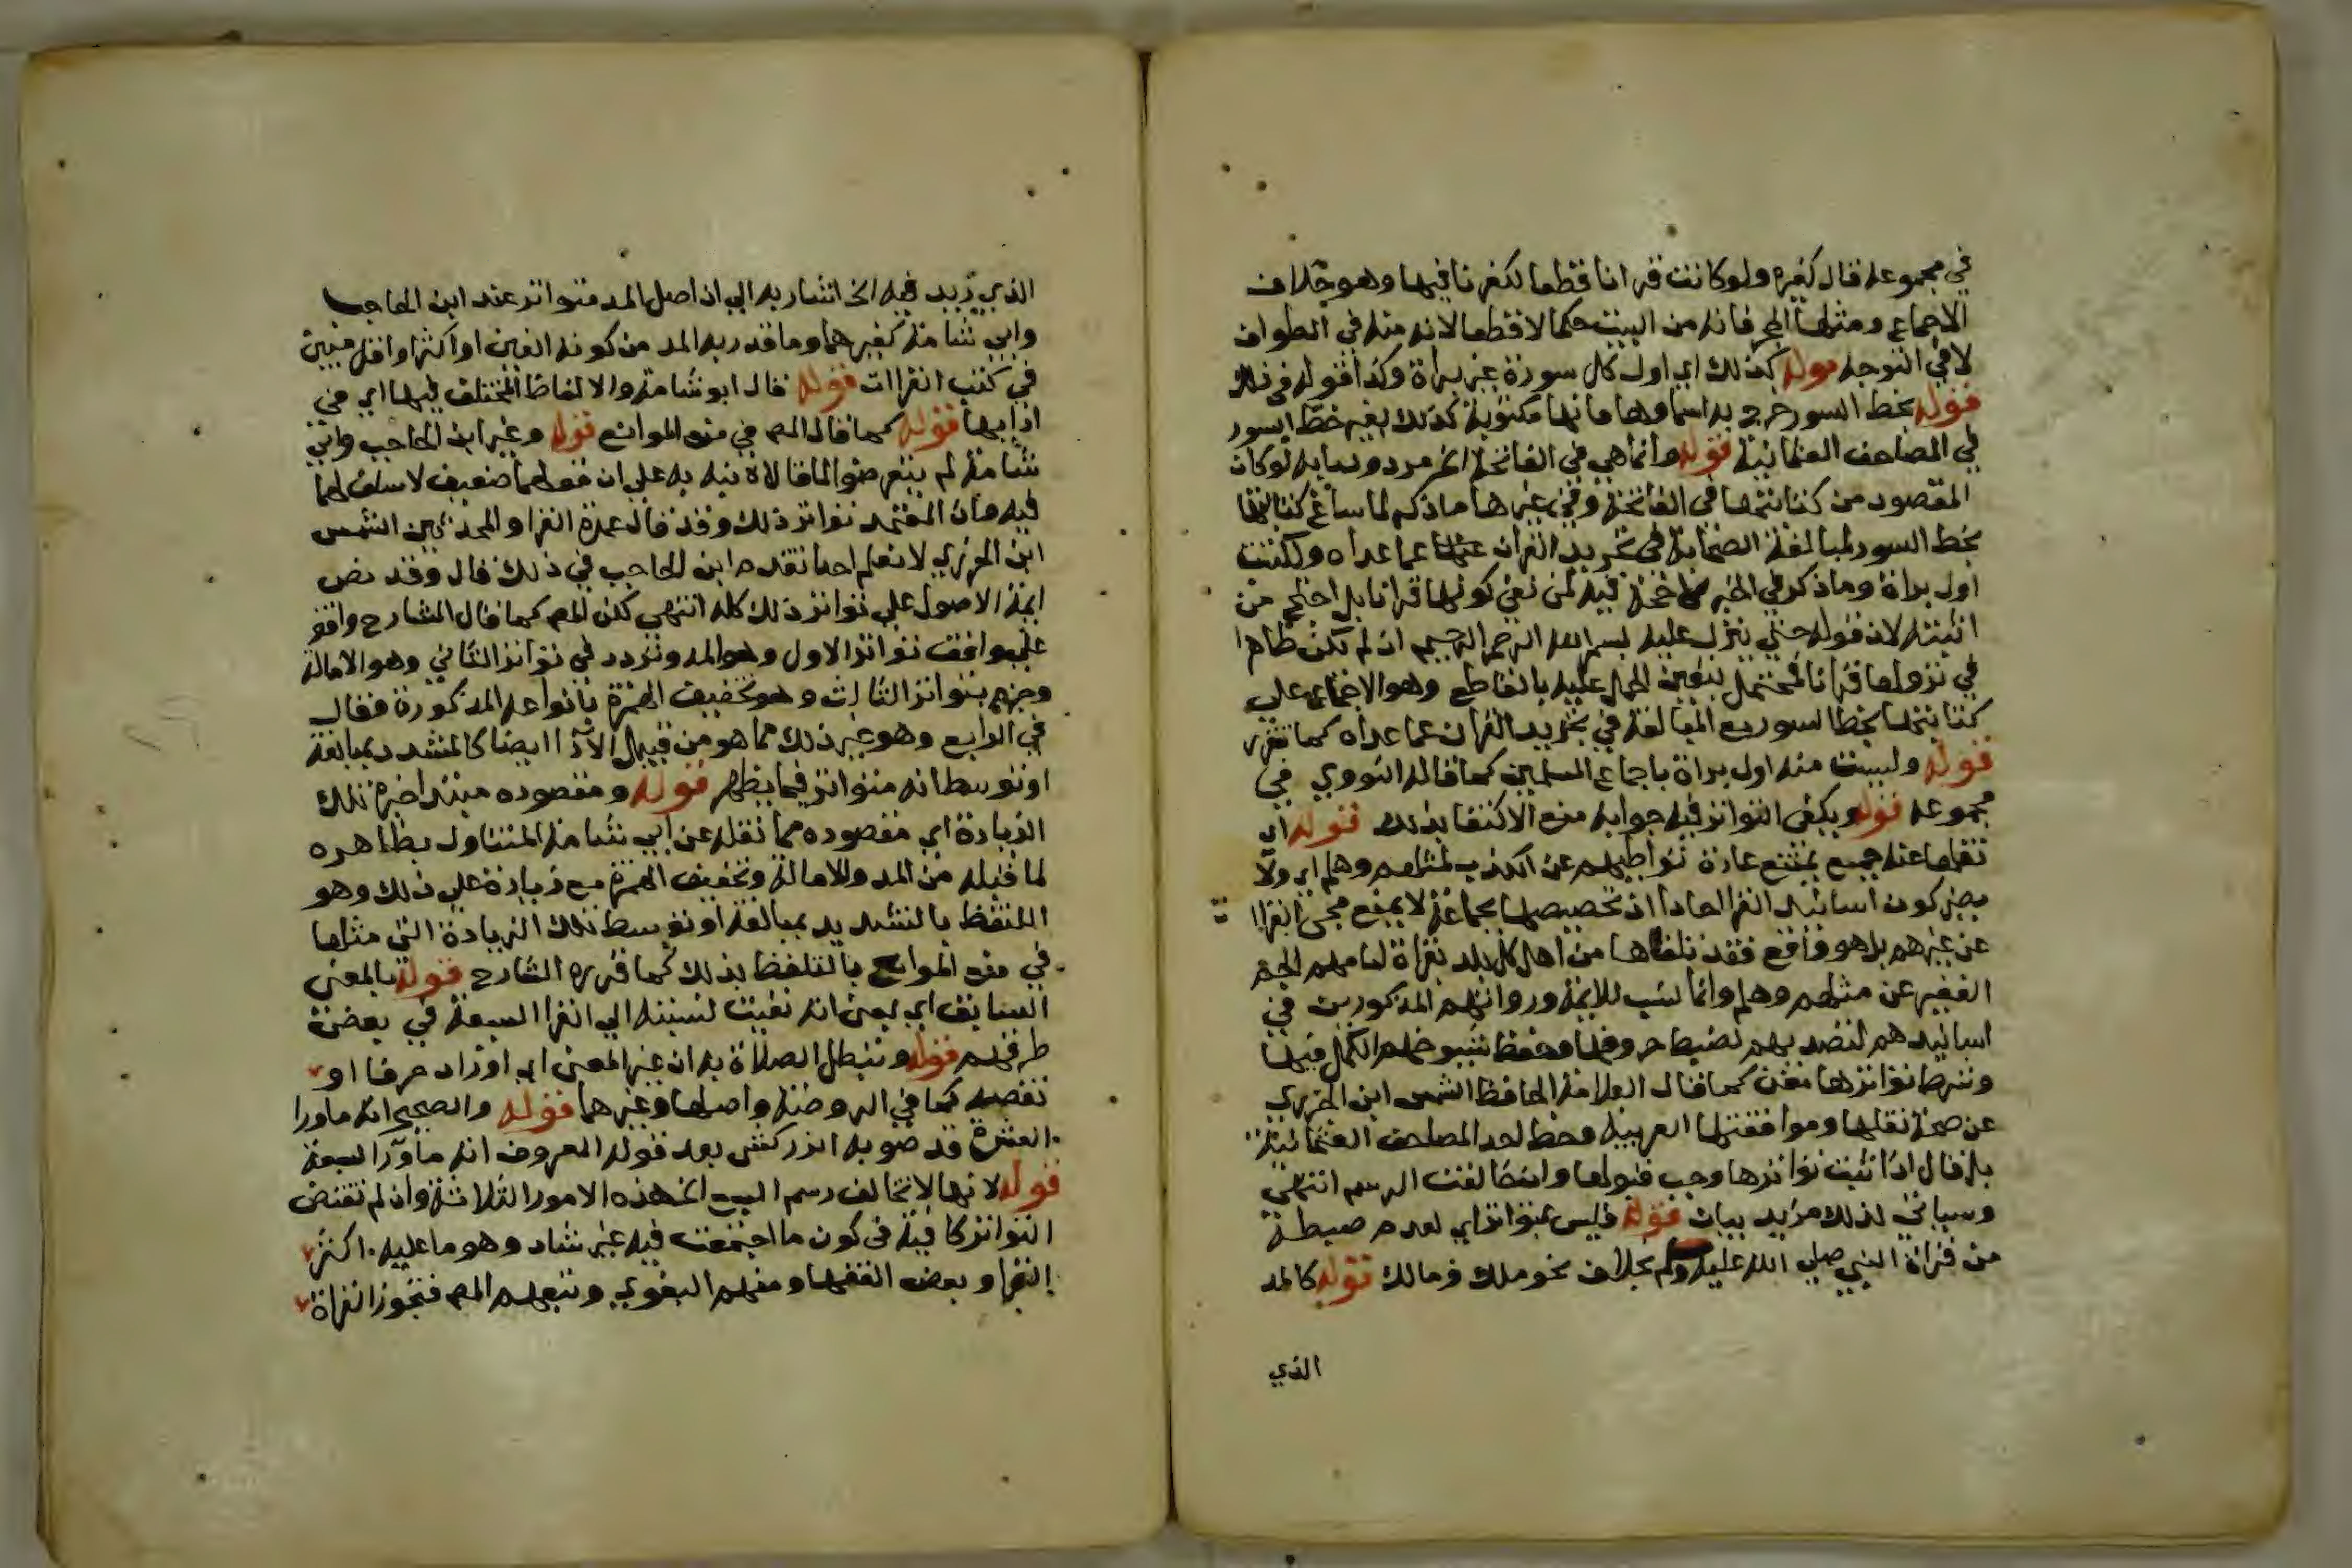 في مجموعه قال كغيره ولو كانت قرانا قطعا لكفر نافيها وهو خلاف
الاجماع ومثلها الحجر فانه من البيت حكما لا قطعا لانه منه في الطواف
لا في التوجه قوله كذلك اي اول كل سورة غير براة وكذا قوله في ذلك
قوله بخط السور خرج به اسماوها فانها مكتوبة كذلك بغير خط السور
في المصاحف العثمانية قوله وانما هي في الفاتحة الخ مردود بانه لو كان
المقصود من كتابتها في الفاتحة وفي غيرها ما ذكر لما ساغ كتابتها
بخط السور لمبالغة الصحابة في تجريد القران عما عداه ولكتبت
اول براة وما ذكر في الخبر لا حجة فيه لمن نفى كونها قرانا بل احتج به من
اثبته لان قوله حتي ينزل عليه بسم الله الرحمن الرحيم ان لم يكن ظاهرا
في نزولها قرانا فمحتمل يتعين الحمل عليه بالقاطع وهو الاجماع علي
كتابتها بخط السور مع المبالغة في تجريد القران عما عداه كما تقرر
قوله وليست منه اول براة باجماع المسلمين كما قاله النووي في
مجموعه قوله ويكفي التواتر فيه جوابه منع الاكتفا بذلك قوله اي
نقلها عنه جمع يمتنع عادة تواطيهم عن الكذب لمثلهم وهلم اي ولا
يضر كون اسانيد القرا احادا اذ تخصيصها بجماعة لا يمنع مجي القراات
عن غيرهم بل هو واقع فقد تلقاها من اهل كل بلد بقراة امامهم الجم
الغفير عن مثلهم وهلم وانما نسب للايمة ورواتهم المذكورين في
اسانيدهم لتصديهم لضبط حروفها وحفظ شيوخهم الكمل فيها
وشرط تواترها مغن كما قال العلامة الحافظ الشمس ابن الجزري
عن صحة نقلها وموافقتها العربية وخط احد المصاحف العثمانية
بل قال اذا ثبت تواترها وجب قبولها وان خالفت الرسم انتهي
وسياتي لذلك مزيد بيان قوله فليس بمتواتر اي لعدم ضبطه
من قراة النبي صلي الله عليه وسلم بخلاف نحو ملك ومالك قوله كالمد
الذي
الذي زيد فيه الخ اشار به الي ان اصل المد متواتر عند ابن الحاجب
وابي شامة كغيرهما وما قدر به المد من كونه الفين او اكثر او اقل مبين
في كتب القراات قوله قال ابو شامة والالفاظ المختلف فيها اي في
ادايها قوله كما قال المص في منع الموانع قوله وغير ابن الحاجب وابي
شامة لم يتعرضوا لما قالاه نبه به علي ان قولهما ضعيف لا سلف لهما
فيه فان المعتمد تواتر ذلك وقد قال عمدة القرا والمحدثين الشمس
ابن الجزري لا نعلم احدا تقدم ابن الحاجب في ذلك قال وقد نص
ايمة الاصول علي تواتر ذلك كله انتهي لكن المص كما قال الشارح وافق
علي تواتر الاول وهو المد وتردد في تواتر الثاني وهو الامالة
وجزم بتواتر الثالث وهو تخفيف الهمزة بانواعه المذكورة فقال
في الرابع وهو غير ذلك مما هو من قبيل الادا ايضا كالمشدد بمبالغة
او توسط انه متواتر فيما يظهر قوله ومقصوده مبتدا خبره تلك
الزيادة اي مقصوده مما نقله عن ابي شامة المتناول بظاهره
لما قبله من المد والامالة وتخفيف الهمزة مع زيادة علي ذلك وهو
التلفظ بالتشديد بمبالغة او توسط تلك الزيادة التي مثلها
في منع الموانع بالتلفظ بذلك كما قرره الشارح قوله بالمعني
السابق اي يعني انه نفيت لنسبته الي القرا السبعة في بعض
طرقهم قوله وتبطل الصلاة به ان غير المعني اي او زاد حرفا او
نقصه كما في الروضة واصلها وغيرهما قوله والصحيح انه ما ورا
العشرة قد صوبه الزركشي بعد قوله المعروف انه ما ورا السبعة
قوله لانها لا تخالف رسم السبع الخ هذه الامور الثلاثة وان لم تقتض
التواتر كافية في كون ما اجتمعت فيه غير شاذ وهو ما عليه اكثر
القرا وبعض الفقها ومنهم البغوي وتبعهم المص فتجوز القراة